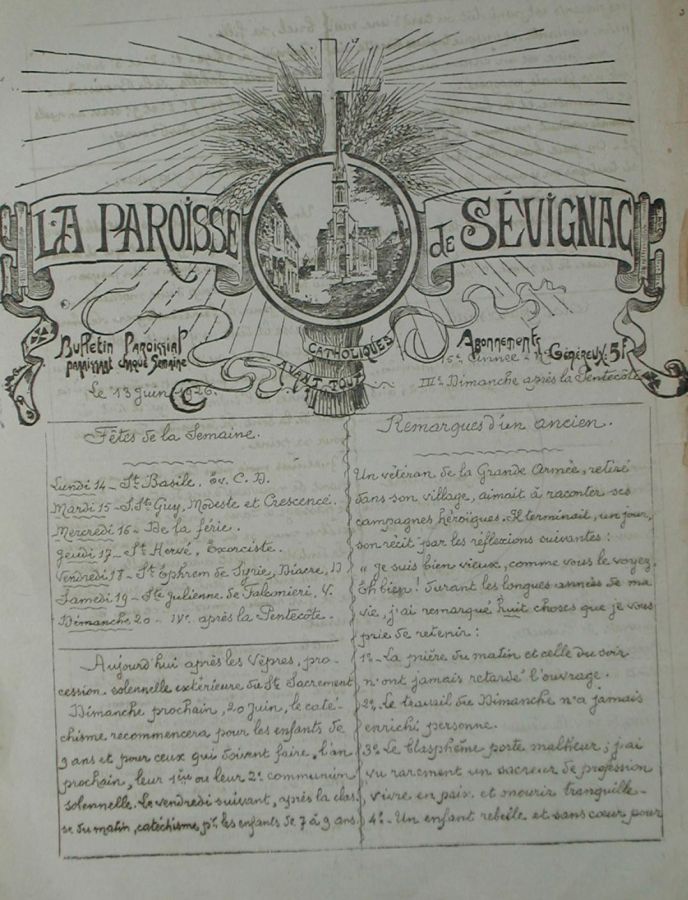 LA PAROISSE de SÉVIGNAC
CATHOLIQUES
AVANT TOUT
Bulletin Paroissial
paraissant chaque Semaine
Le 13 juin 1926.
Abonnements
Généreux 5f
Année
IIIe Dimanche après la Pentecôte
Fêtes de la Semaine.
Lundi 14 – St. Basile. Ev. C. D.
Mardi 15 – S.Sts Guy, Modeste et Crescence.
Mercredi 16 – De la férie.
Jeudi 17 – St Hervé, Exorciste.
Vendredi 18 – St Ephrem de Syrie, Diacre, D
Samedi 19 – Ste Julienne de Falconieri, V.
Dimanche 20 – IVe après la Pentecôte.
Aujourd'hui après les Vêpres, pro-
cession solennelle extérieure du St Sacrement
Dimanche prochain, 20 juin, le caté-
chisme recommencera pour les enfants de
9 ans et pour ceux qui doivent faire, l'an
prochain, leur 1ère ou leur 2e communion
solennelle. Le vendredi suivant, après la clas-
se du matin, catéchisme pr les enfants de 7 à 9 ans.
Remarques d'un ancien.
Un vétéran de la Grande Armée, retiré
dans son village, aimait à raconter ses
campagnes héroïques. Il terminait, un jour,
son récit par les réflexions suivantes :
« Je suis bien vieux, comme vous le voyez.
Eh bien ! durant les longues années de ma
vie, j'ai remarqué huit choses que je vous
prie de retenir :
1º – La prière du matin et celle du soir
n'ont jamais retardé l'ouvrage.
2º – Le travail du Dimanche n'a jamais
enrichi personne.
3º – Le blasphème porte malheur ; j'ai
vu rarement un sacreur de profession
vivre en paix et mourir tranquille –
4º – Un enfant rebelle et sans cœur pour